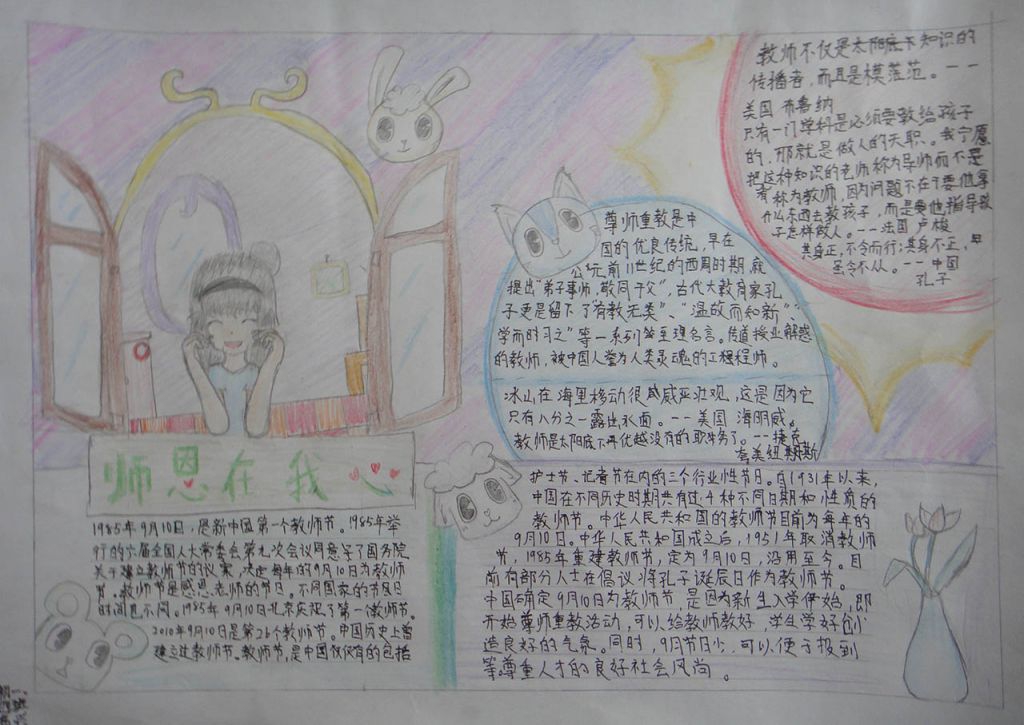 教师不仅是太阳底下知识的
传播者，而且是模范范。——
美国 布鲁纳
只有一门学科是必须要教给孩子
的，那就是做人的天职。我宁愿
把这种知识的老师称为导师而不是
称为教师，因为问题不在于要他拿
什么东西去教孩子，而是要他指导孩
子怎样做人。——法国 卢梭
其身正，不令而行；其身不正，
虽令不从。——中国
孔子
尊师重教是中
国的优良传统，早在
公元前11世纪的西周时期，就
提出“弟子事师，敬同于父”，古代大教育家孔
子更是留下了“有教无类”、“温故而知新”、
学而时习之”等一系列
至理名言。传道授业解惑
的教师，被中国人誉为人类灵魂的工程程师。
冰山在海里移动很威威严壮观，这是因为它
只有八分之一露出水面。——美国 海明威。
教师是太阳底下再优越没有的职务了。——捷克
夸美纽斯
师恩在我心
1985年9月10日，是新中国第一个教师节。1985年举
行的六届全国人大常委会第九次会议同意了国务院
关于建立教师节的议案，决定每年的9月10日为教师
节。教师节是感恩老师的节日。不同国家的节日
时间也不同。1985年9月10日北京庆祝了第一个教师节。
2010年9月10日是第26个教师节。中国历史上曾
建立过教师节。教师节，是中国仅仅有的包括
护士节、记者节在内的三个行业性节日。自1931年以来，
中国在不同历史时期共有过4种不同日期和性质的
教师节。中华人民共和国的教师节目前为每年的
9月10日。中华人民共和国成立之后，1951年取消教师
节，1985年重建教师节，定为9月10日，沿用至今。目
前有部分人士在倡议将孔子诞辰日作为教师节。
中国确定9月10日为教师节，是因为新生入学伊始，即
开始尊师重教活动，可以给教师教好，学生学好创
造良好的气氛。同时，9月节日少，可以便于报到
等尊重人才的良好社会风尚。